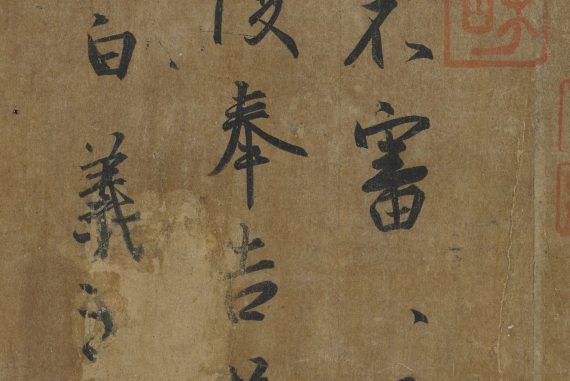 不審
復奉告
白羲之